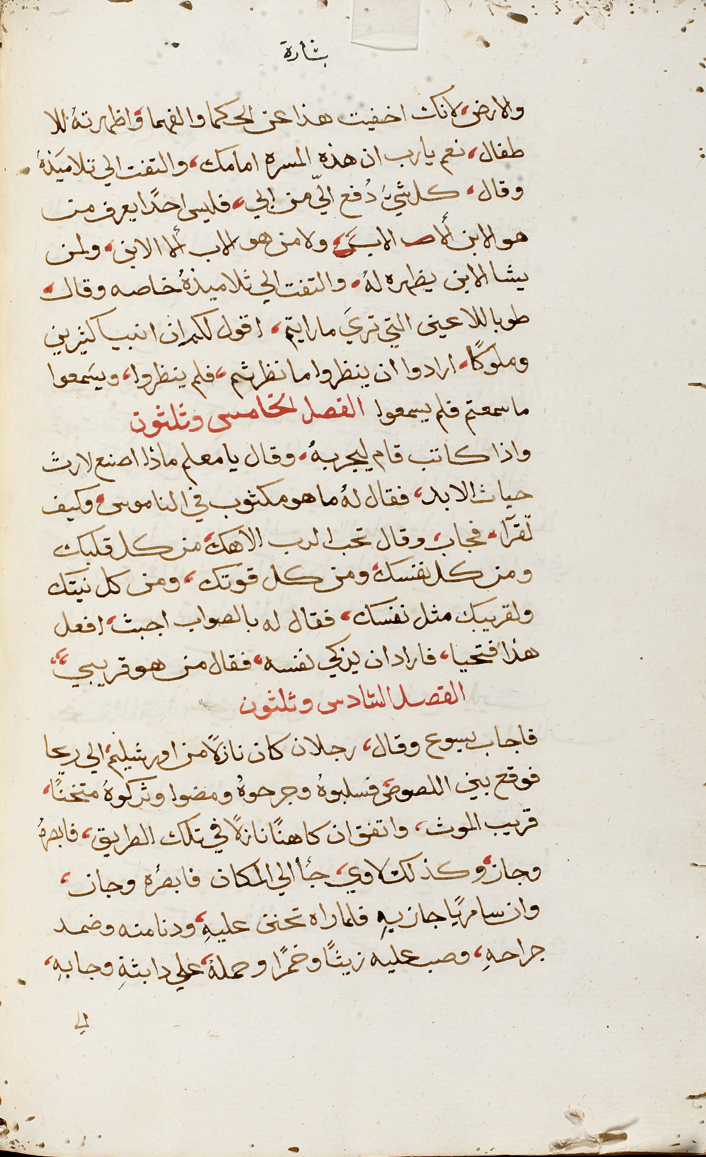 بشارة
والارض، لانك اخفيت هذا عن الحكما والفهما، واظهرته للا
طفال، نعم يارب ان هذه المسره امامك، والتفت الي تلاميذهُ
وقال، كل شيٍ دُفع اليّ من ابي، فليس احدًا يعرف من
هو الابن الا الاب، ولا من هو الاب الا الابن، ولمن
يشا الابن يظهره لهُ، والتفت الي تلاميذهُ خاصه وقال،
طوبا للاعين التي تريَ مارايتم، اقول لكم ان انبيا كثيرين
وملوكًا، ارادوا ان ينظروا ما نظرتم، فلم ينظروا، ويسَمعوا
ما سمعتم فلم يسمعوا الفصل الخامس وثلثون
واذا كاتب قام ليجربهُ، وقال يا معلم ماذا اصنع لارث
حيات الابد، فقال لهُ ما هو مكتوب في الناموس، وكيف
تقرآ، فجاب وقال تحب الرب الاهك، من كل قلبك
ومن كل نفسك، ومن كل قوتك، ومن كل نيتك
ولقريبك مثل نفسك، فقال له بالصواب اجبت، افعل
هذا فتحيا، فاراد ان يزكي نفسه، فقال من هو قريبي،
الفصل السادس وثلثون
فاجاب يسوع وقال، رجلان كان نازلًا من اورشليم، الي ريحا
فوقع بين اللصوص، فسلبوهُ وجرحوهُ ومضوا وتركوهُ متخنًا،
قريب الموت، واتفق ان كاهنًا نازلًا في تلك الطريق، فابصرهُ
وجاز، وكذلك لاوي، جأ الي المكان فابصرُه وجاز،
وان سامريًا جاز بهِ فلما راه تحنن عليهِ، ودنا منه وضمد
جراحهِ، وصب عليه زيتًا وخمرًا وحملهُ، علي دابتهِ وجابهِ،